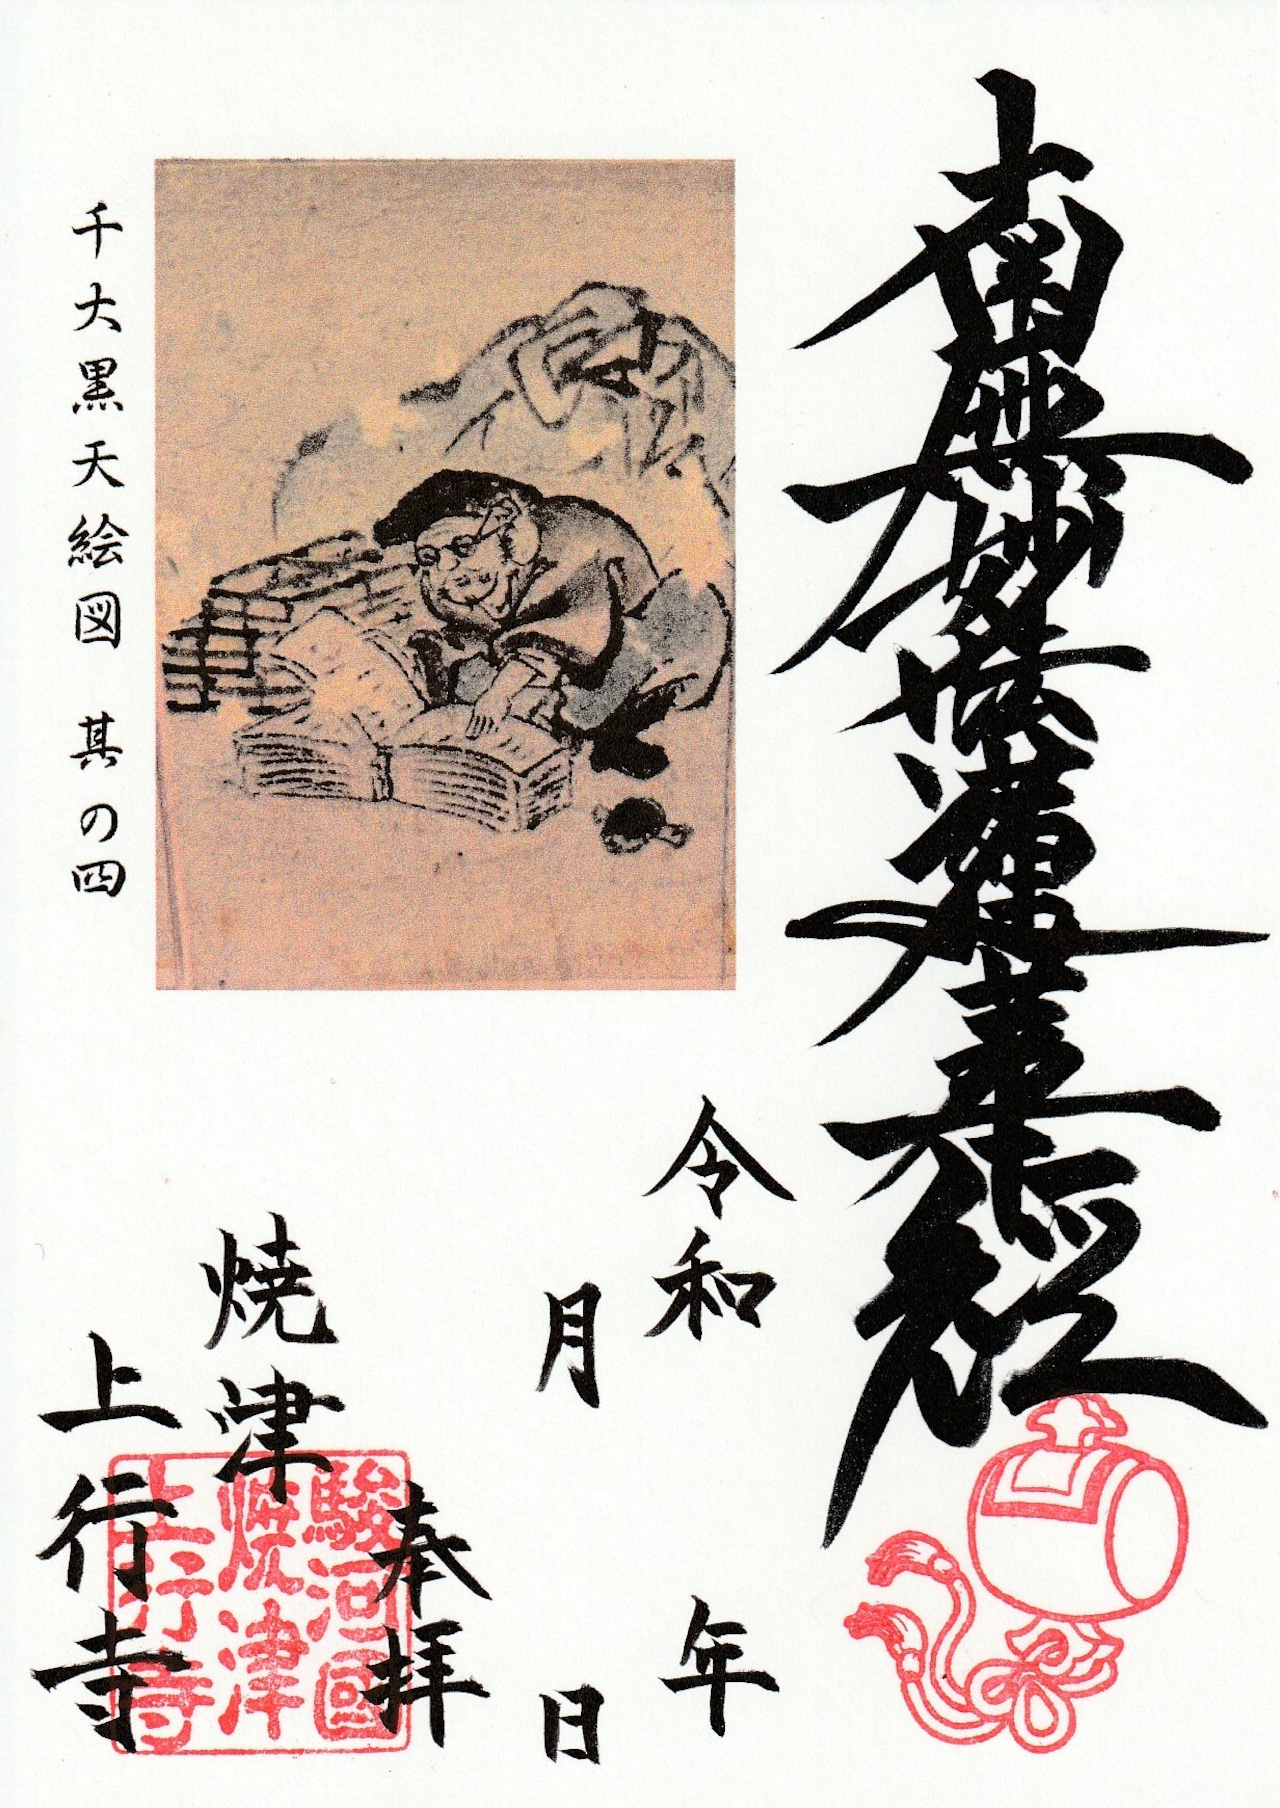 南無妙法蓮華経
令和
年
月
日
奉拝
焼津
上行寺
駿河國
焼津
上行寺
千大黒天絵図 其の四